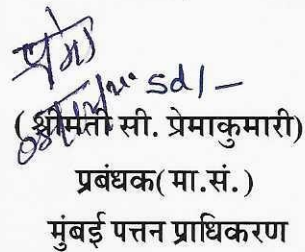 प्रेमा
sd/-
(श्रीमती सी. प्रेमाकुमारी)
प्रबंधक(मा.सं.)
मुंबई पत्तन प्राधिकरण